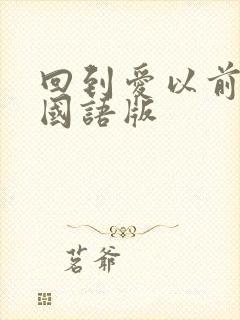 回到愛以前
國語版
茗爺